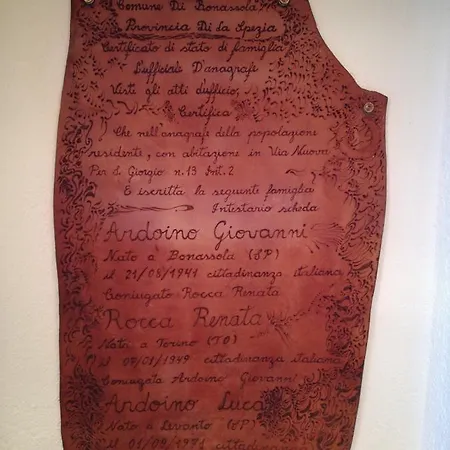 Il Comune Di Bonassola
Provincia Di La Spezia
Certificato di stato di famiglia
L'ufficiale D'anagrafe
Visti gli atti d'ufficio,
Certifica
Che nell'anagrafe della popolazione
residente, con abitazione in Via Nuova
Per S. Giorgio n. 13 Int. 2
È iscritta la seguente famiglia
Intestario scheda
Ardoino Giovanni
Nato a Bonassola (SP)
il 21/05/1941 cittadinanza italiana
Coniugato Rocca Renata
Rocca Renata
Nata a Torino (TO)
il 07/03/1949 cittadinanza italiana
Coniugata Ardoino Giovanni
Ardoino Luca
Nato a Levanto (SP)
il 01/09/1971 cittadinanza